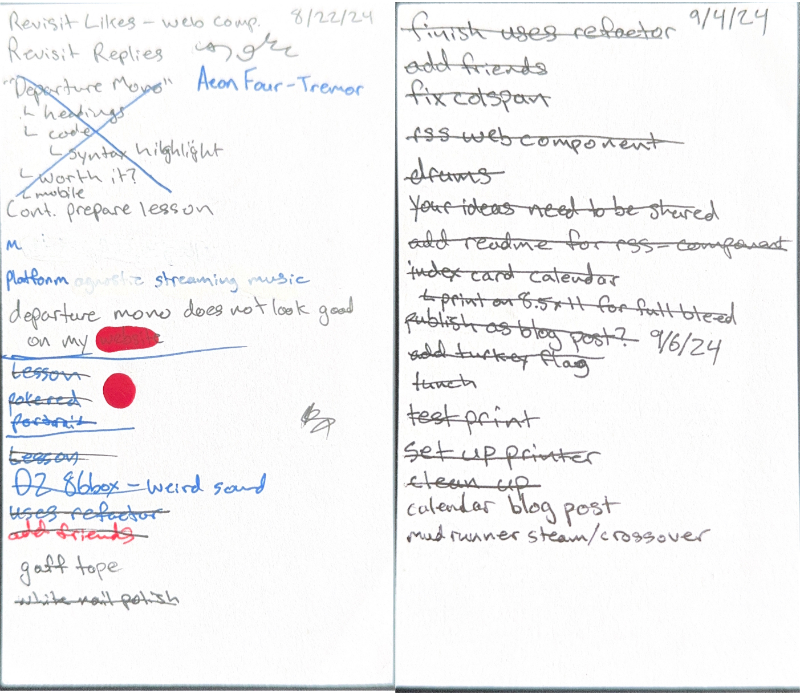 Revisit Likes - web comp. 8/22/24
Revisit Replies
"Departure Mono" Aeon Four-Tremor
↳ headings
↳ code
↳ syntax highlight
↳ worth it?
↳ mobile
Cont. prepare lesson
m
platform agnostic streaming music
departure mono does not look good
on my
Lesson
pokered
portrait
Lesson
OZ 86box - weird sound
uses refactor
add friends
gaff tape
white nail polish
9/4/24
finish uses refactor
add friends
fix colspan
rss web component
drums
Your ideas need to be shared
add readme for rss-component
index card calendar
↳ print on 8.5x11 for full bleed
publish as blog post? 9/6/24
add turkey flag
lunch
test print
set up printer
clean up
calendar blog post
mudrunner steam/crossover